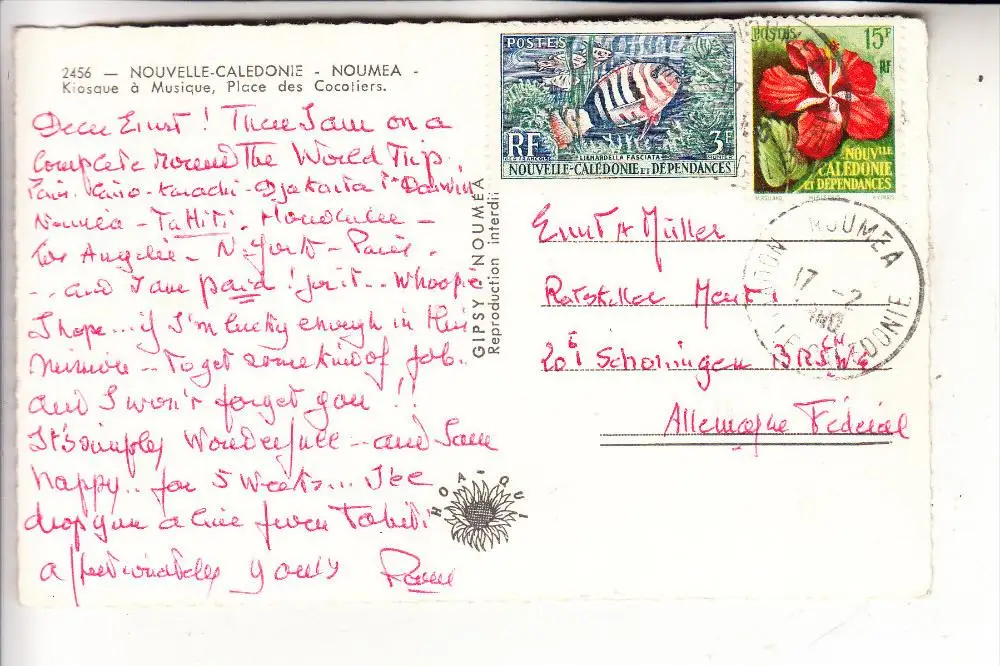 2456 — NOUVELLE-CALEDONIE - NOUMEA -
Kiosque à Musique, Place des Cocotiers.
Dear Ernst! There I am on a
complete round The World Trip
Paris - Cairo - Karachi - Djakarta - Darwin
Nouméa - TaHiTi - Honolulu -
Los Angeles - N-York - Paris.
... and I am paid! for it.. whoopie
I hope... if I'm lucky enough in this
- To get some kind of job..
and I won't forget you!!
It's simply Wonderfull -- and I am
happy.. for 5 Weeks... I'll
drop you a line from Tahiti
affectionately yours
GIPSY - NOUMÉA
Reproduction interdit
HOA-QUI
POSTES
RF
3F
LIENARDELLA FASCIATA
NOUVELLE-CALÉDONIE ET DÉPENDANCES
POSTES
15F
RF
NOUVLLE
CALÉDONIE
ET DÉPENDANCES
NOUMEA
17 -2
NOUVELLE CALEDONIE
Ernst A Müller
Ratskeller
Schöningen
Allemagne Fédéral